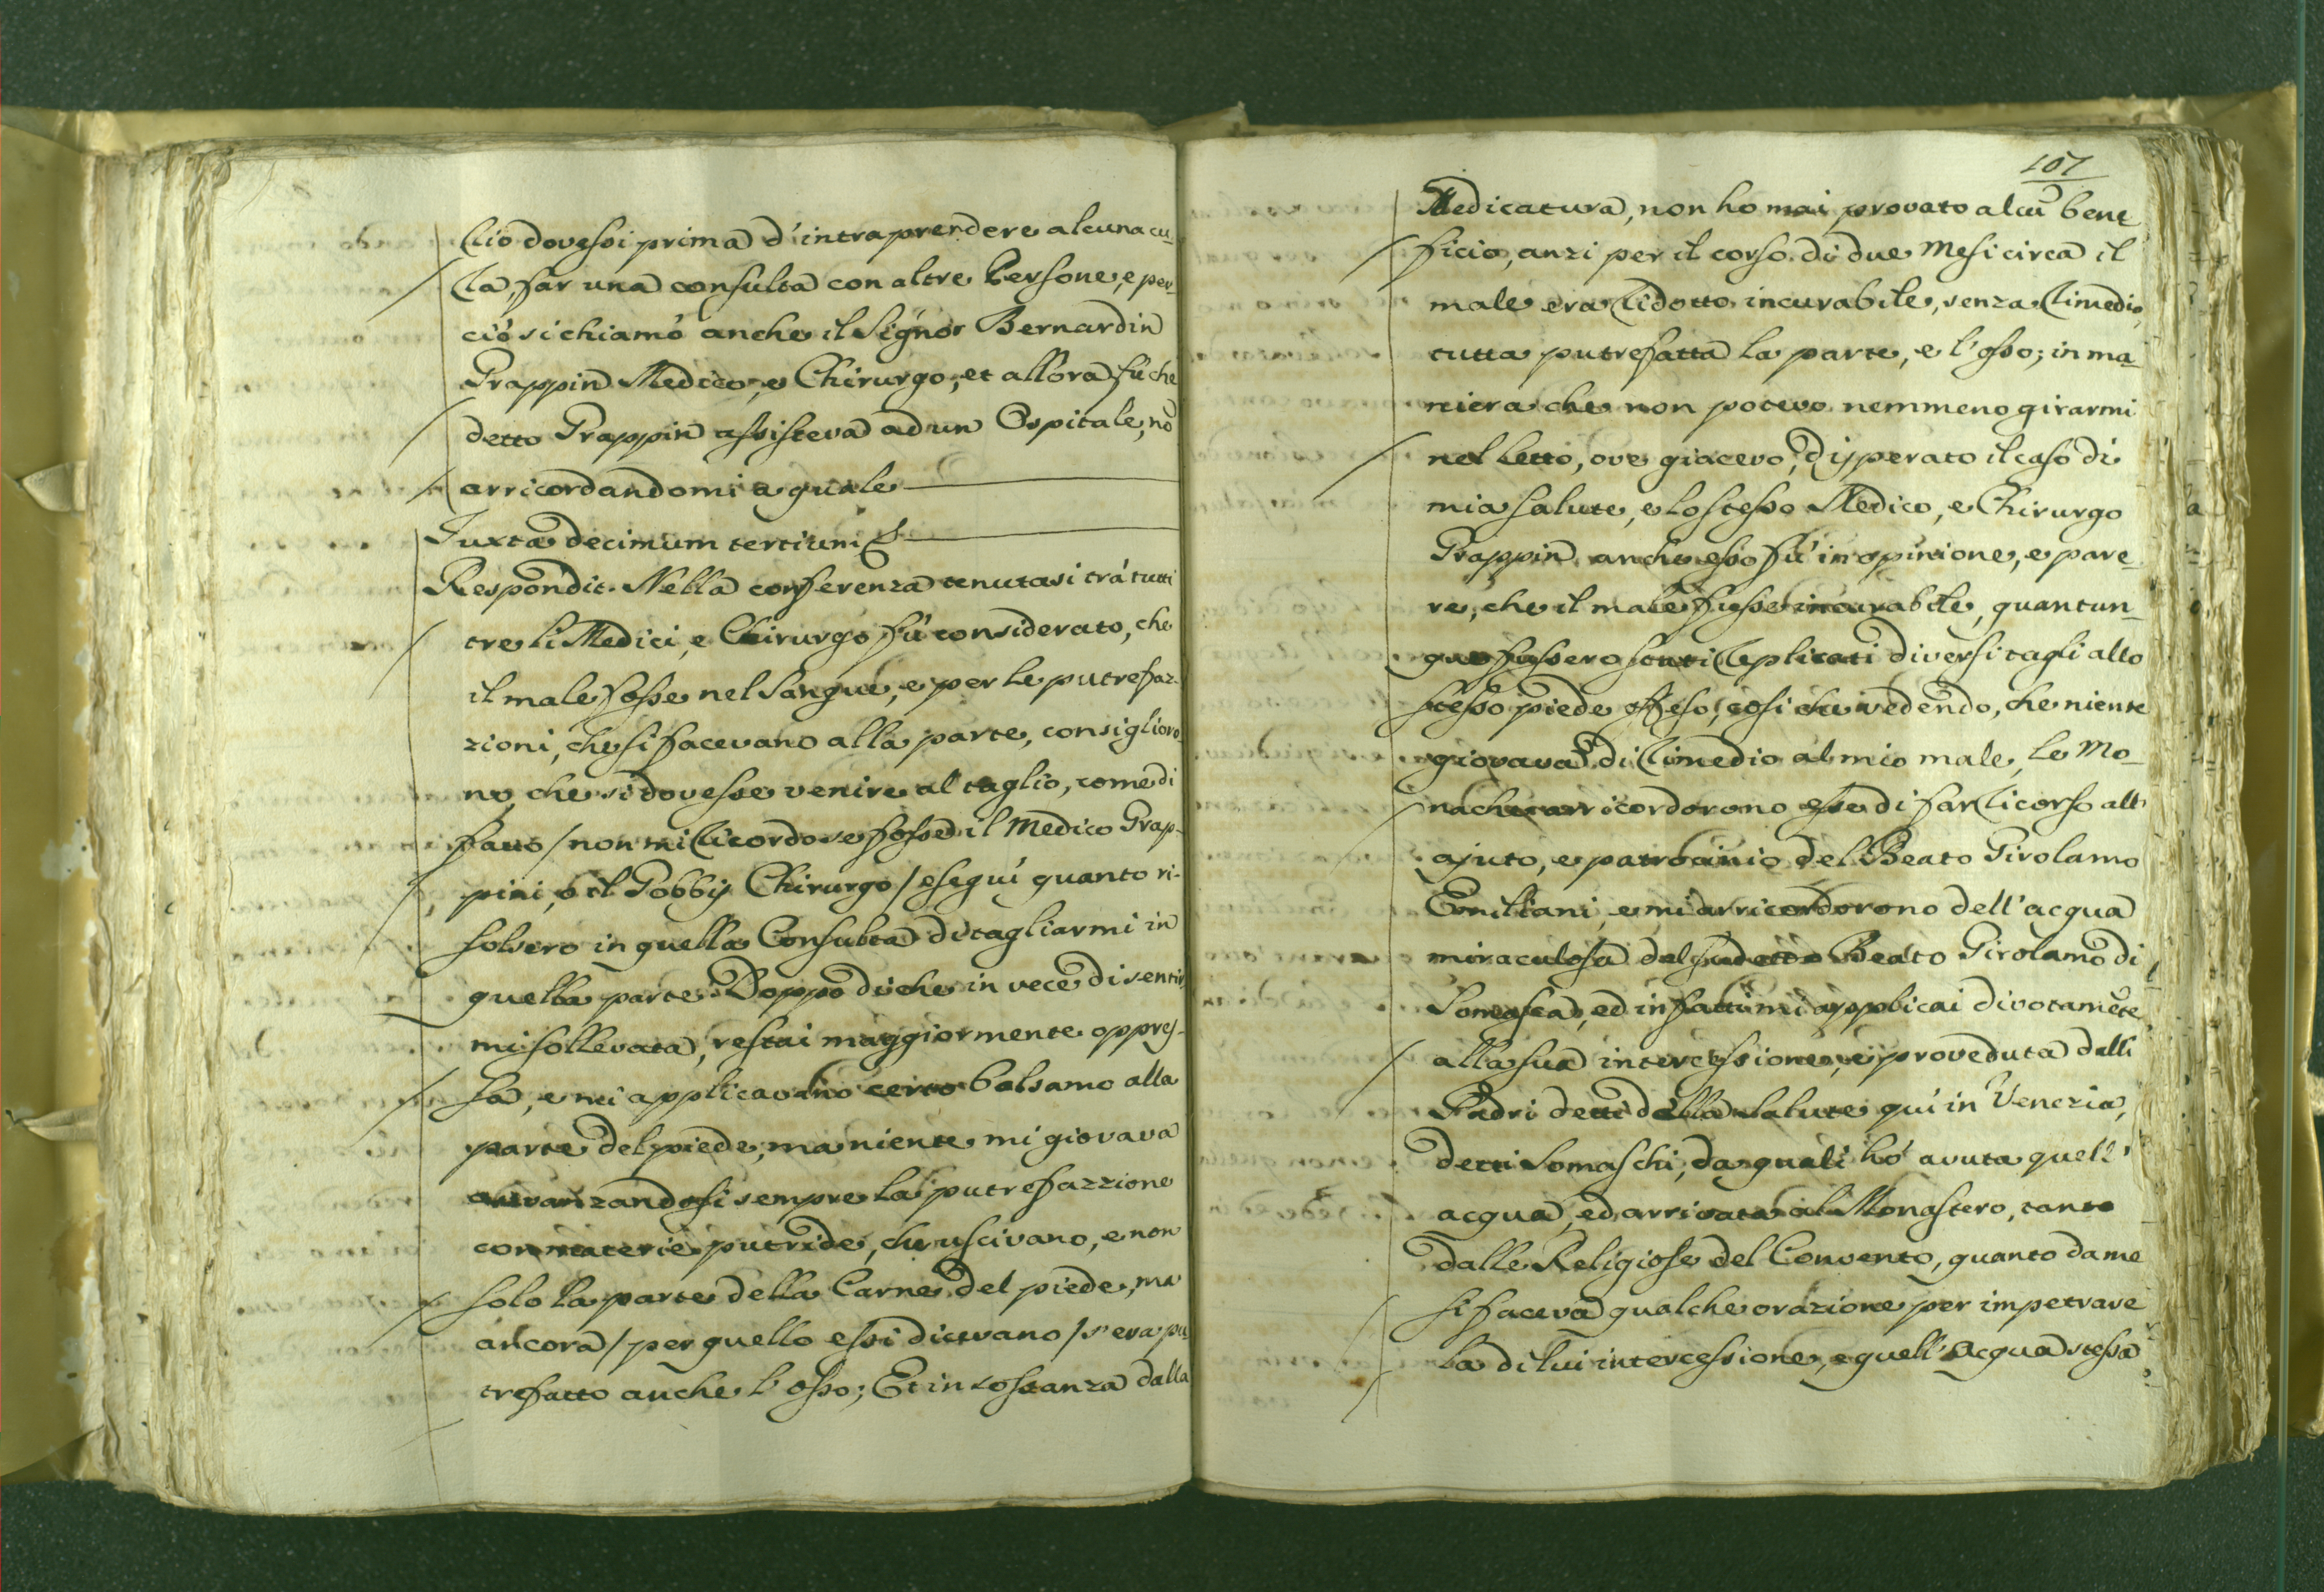 rcio dovessi prima d'intraprendere alcuna cu_
ra, far una consulta con altre Persone, e per_
ciò si chiamò anche il Signor Bernardin
Grappin Medico, e Chirurgo, et allora fù che
detto Grappin assisteva ad un Ospitale, nō
arricordandomi a quale
Juxta decimum tertium
Respondit. Nella conferenza tenutasi trá tutti
tre li Medici, e Chirurgo fù considerato, che
il male fosse nel Sangue, e per le putrefaz_
zioni, che si facevano alla parte, consiglioro_
no, che si dovesse venire al taglio, come di
fatto / non mi ricordo se fosse il Medico Grap_
pini, ó il Gobbis Chirurgo / eseguì quanto ri_
solsero in quella Consulta di tagliarmi in
quella parte. Doppo di che in vece di sentir
mi sollevata, restai maggiormente oppres_
sa, e mi applicavano certo balsamo alla
parte del piede, ma niente mi giovava
avvanzandosi sempre la putrefazzione
con materie putride, che uscivano, e non
solo la parte della Carne del piede, ma
ancora / per quello essi dicevano / s'era pu
trefatto anche l'osso; Et in sostanza dalla
107
Medicatura, non ho mai provato alcū bene_
ficio, anzi per il corso di due Mesi circa il
male era ridotto incurabile, senza rimedio,
tutta putrefatta la parte, e l'osso; in ma_
niera che non potevo nemmeno girarmi
nel Letto, ove giacevo, disperato il caso di
mia salute, e lo stesso Medico, e Chirurgo
Grappin anche esso fù in opinione, e pare_
re, che il male fusse incurabile, quantun_
que fussero stati replicati diversi tagli allo
stesso piede offeso, così che vedendo, che niente
giovava di rimedio al mio male, le Mo_
nache arricordorono esse di far ricorso all'
ajuto, e patrocinio del Beato Girolamo
Emiliani, e mi arricordorono dell'acqua
miraculosa del sudetto Beato Girolamo di
Somasca, ed in fatti mi applicai divotamēte
alla sua intercessione, e proveduta dalli
Padri detti della Salute quì in Venezia,
detti Somaschi, da quali hò avuta quell'
acqua, ed arrivata al Monastero, tanto
dalle Religiose del Convento, quanto da me
si faceva qualche orazione per impetrare
la di lui intercessione, e quell'Acqua stessa